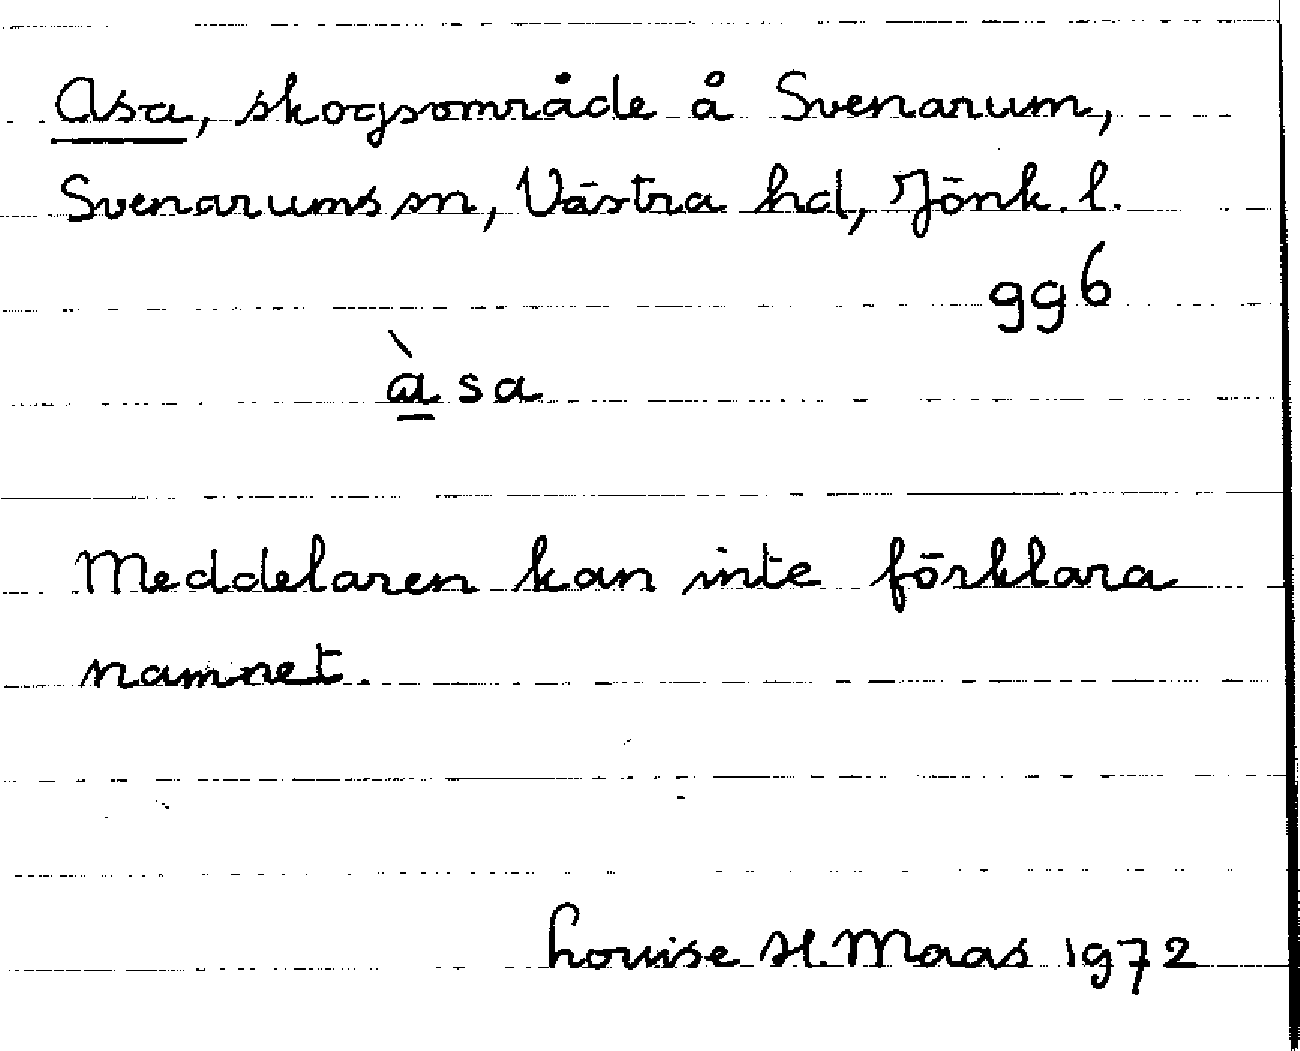 Asa, skogsområde å Svenarum,
Svenarums sn, Västra hd, Jönk. l.
gg6
à̱ sa
Meddelaren kan inte förklara
namnet.
Louise H. Maas 1972